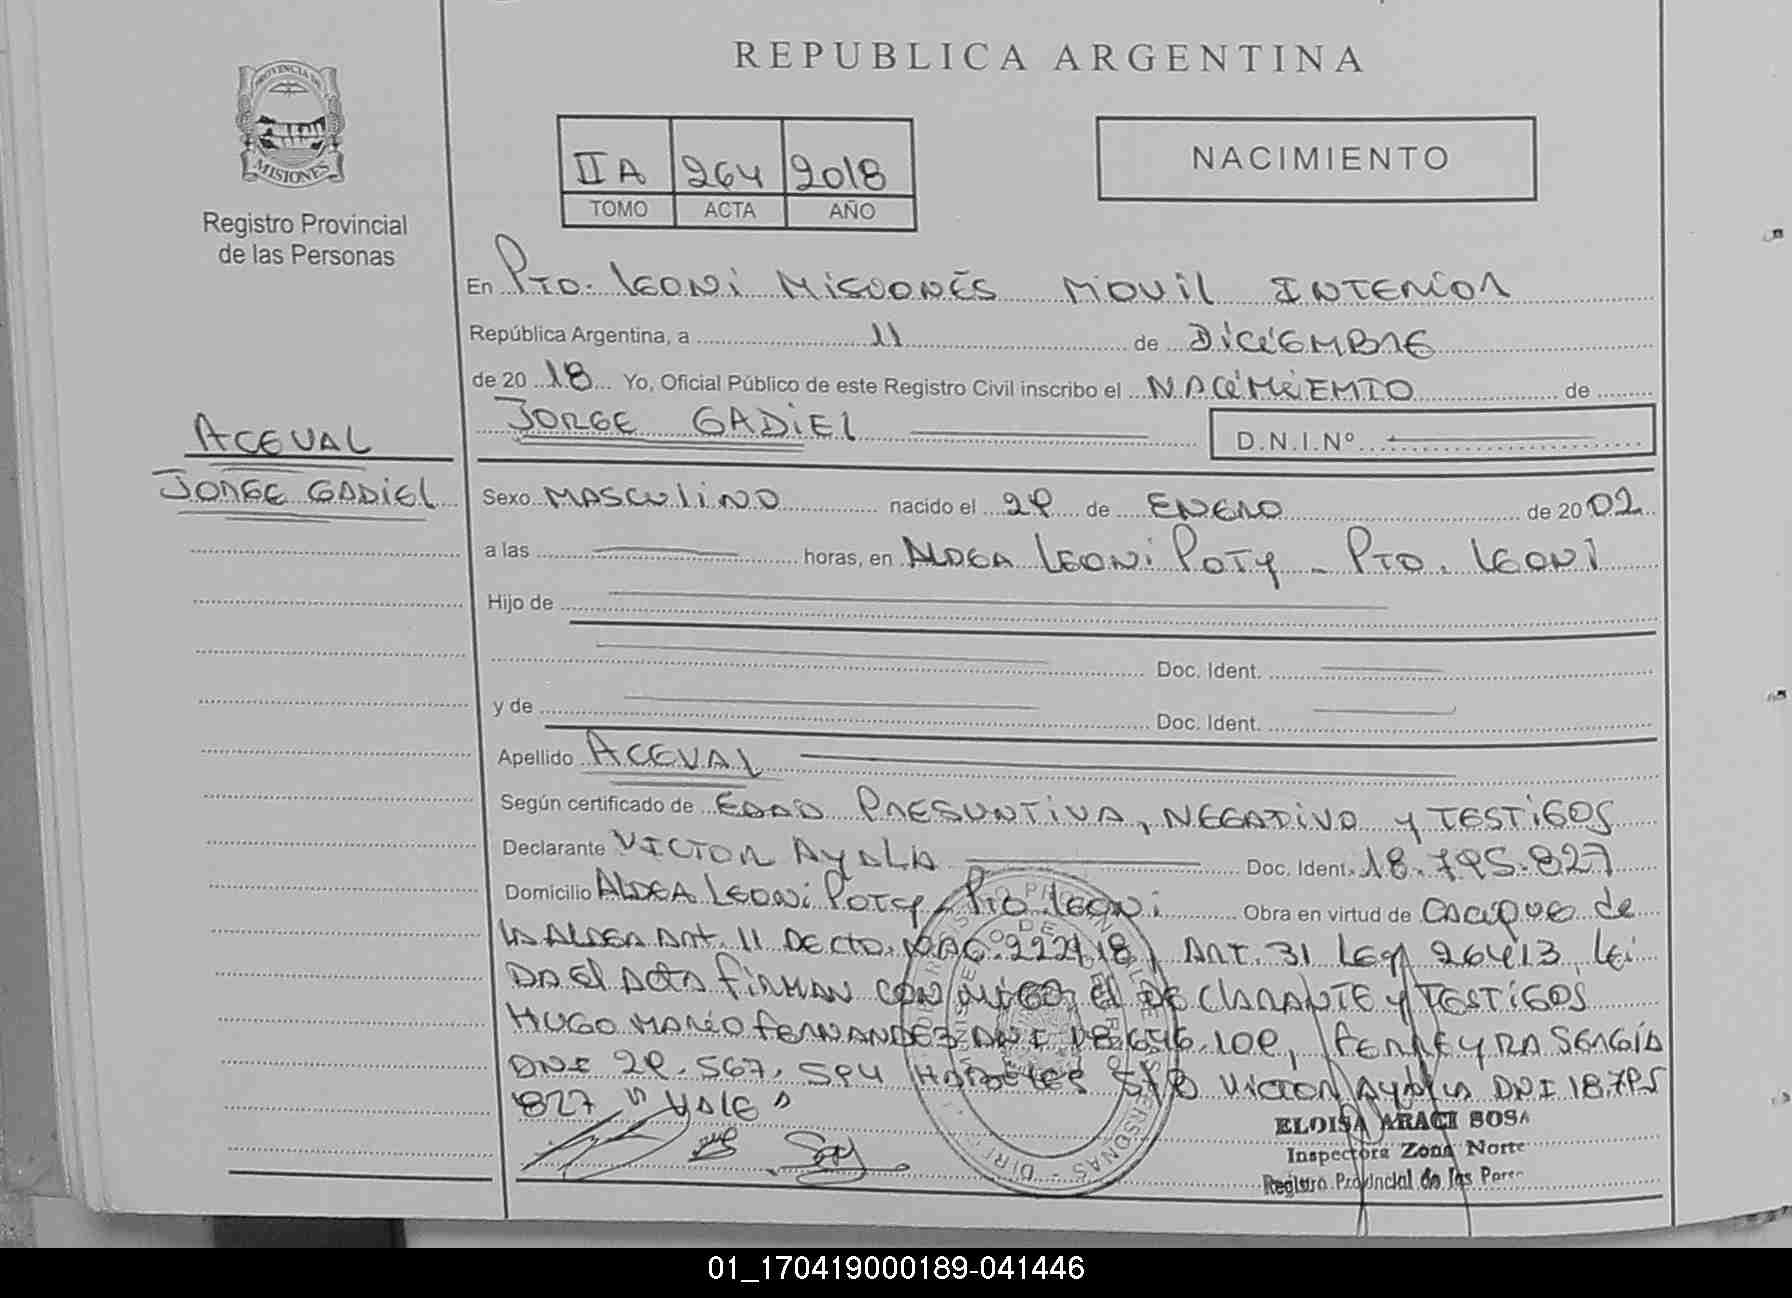 REPUBLICA ARGENTINA
PROVINCIA DE
MISIONES
Registro Provincial
de las Personas
II A 264 2018
TOMO ACTA AÑO
NACIMIENTO
En Pto. Leoni Misiones Movil Interior
República Argentina, a 11 de DICIEMBRE
de 20 18 Yo, Oficial Público de este Registro Civil inscribo el NACIMIENTO de
JORGE GADIEL D.N.I.Nº
ACEVAL
JORGE GADIEL
Sexo MASCULINO nacido el 29 de ENERO de 20 02
a las horas, en ALDEA LEONI POTY - PTO. LEONI
Hijo de
Doc. Ident.
y de Doc. Ident.
Apellido ACEVAL
Según certificado de EDAD PRESUNTIVA, NEGATIVO Y TESTIGOS
Declarante VICTOR AYALA Doc. Ident. 18.795.827
Domicilio ALDEA LEONI POTY - PTO LEONI Obra en virtud de CACIQUE de
LA ALDEA ART. 11 DECTO. NAC. ART. 31 LEY 26413, LEI
DA EL ACTA FIRMAN CONMIGO, EL DECLARANTE Y TESTIGOS
HUGO MARIO FERNANDEZ DNI 18.646.109, FERREYRA SERGIO
DNI 29.567.594 S/B VICTOR AYALA DNI 18.795
827 "VALE"
ELOISA ARACI SOSA
Inspectora Zona Norte
Registro Provincial de las Pers
01_170419000189-041446